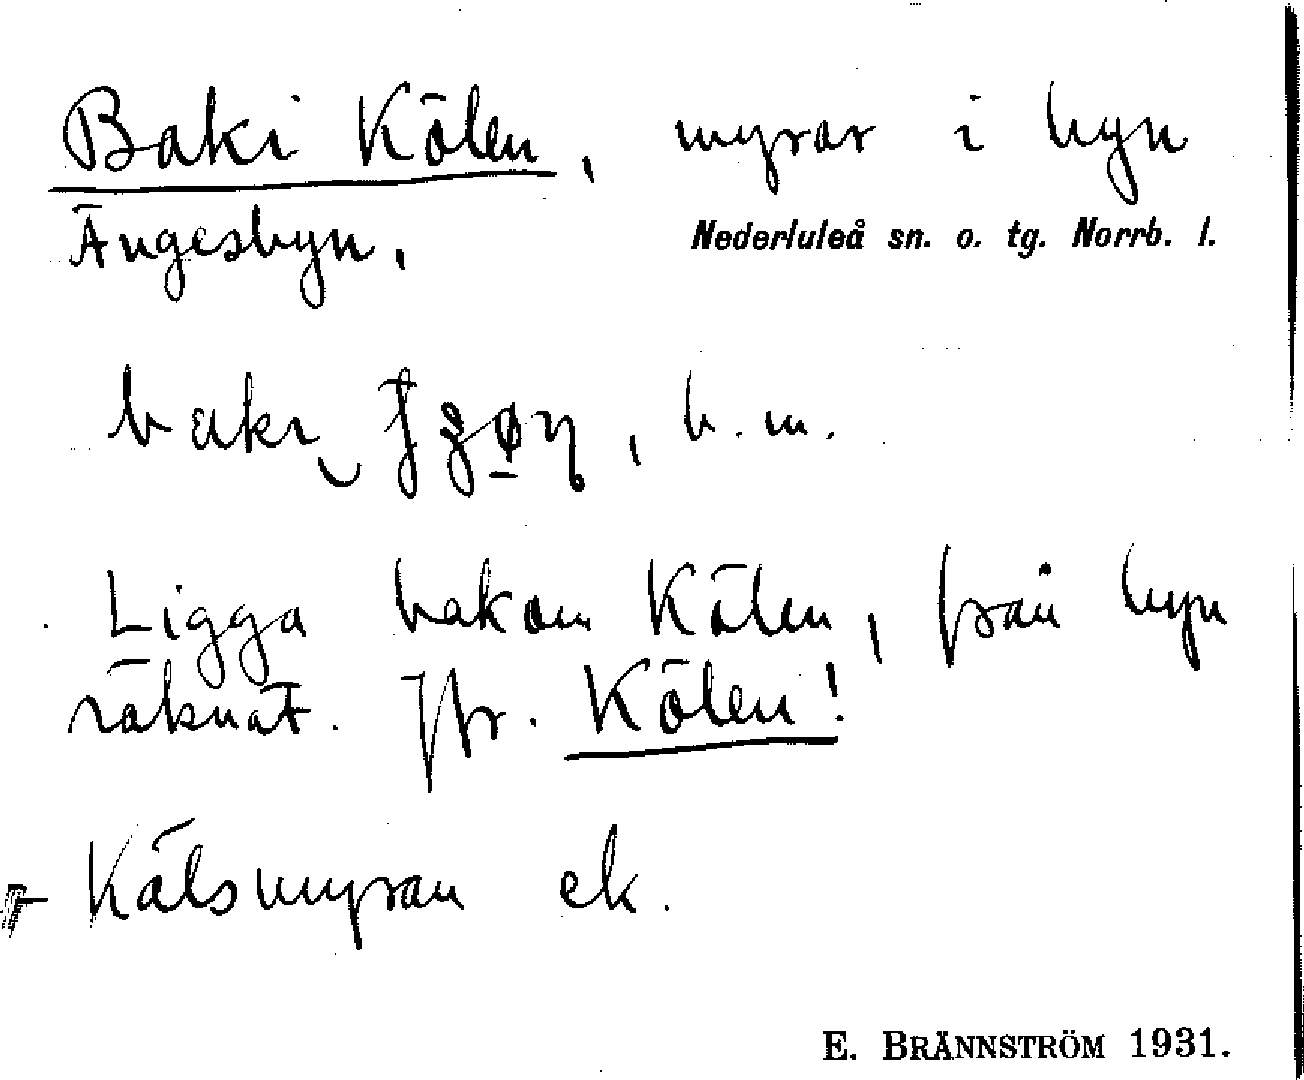 Baki Kölen, myrar i byn
Ängesbyn.
Nederluleå sn. o. tg. Norrb. l.
baki , b. m.
Ligga bakom Kölen, från byn
räknat. Jfr. Kölen!
Kälsmyran ek.
E. BRÄNNSTRÖM 1931.